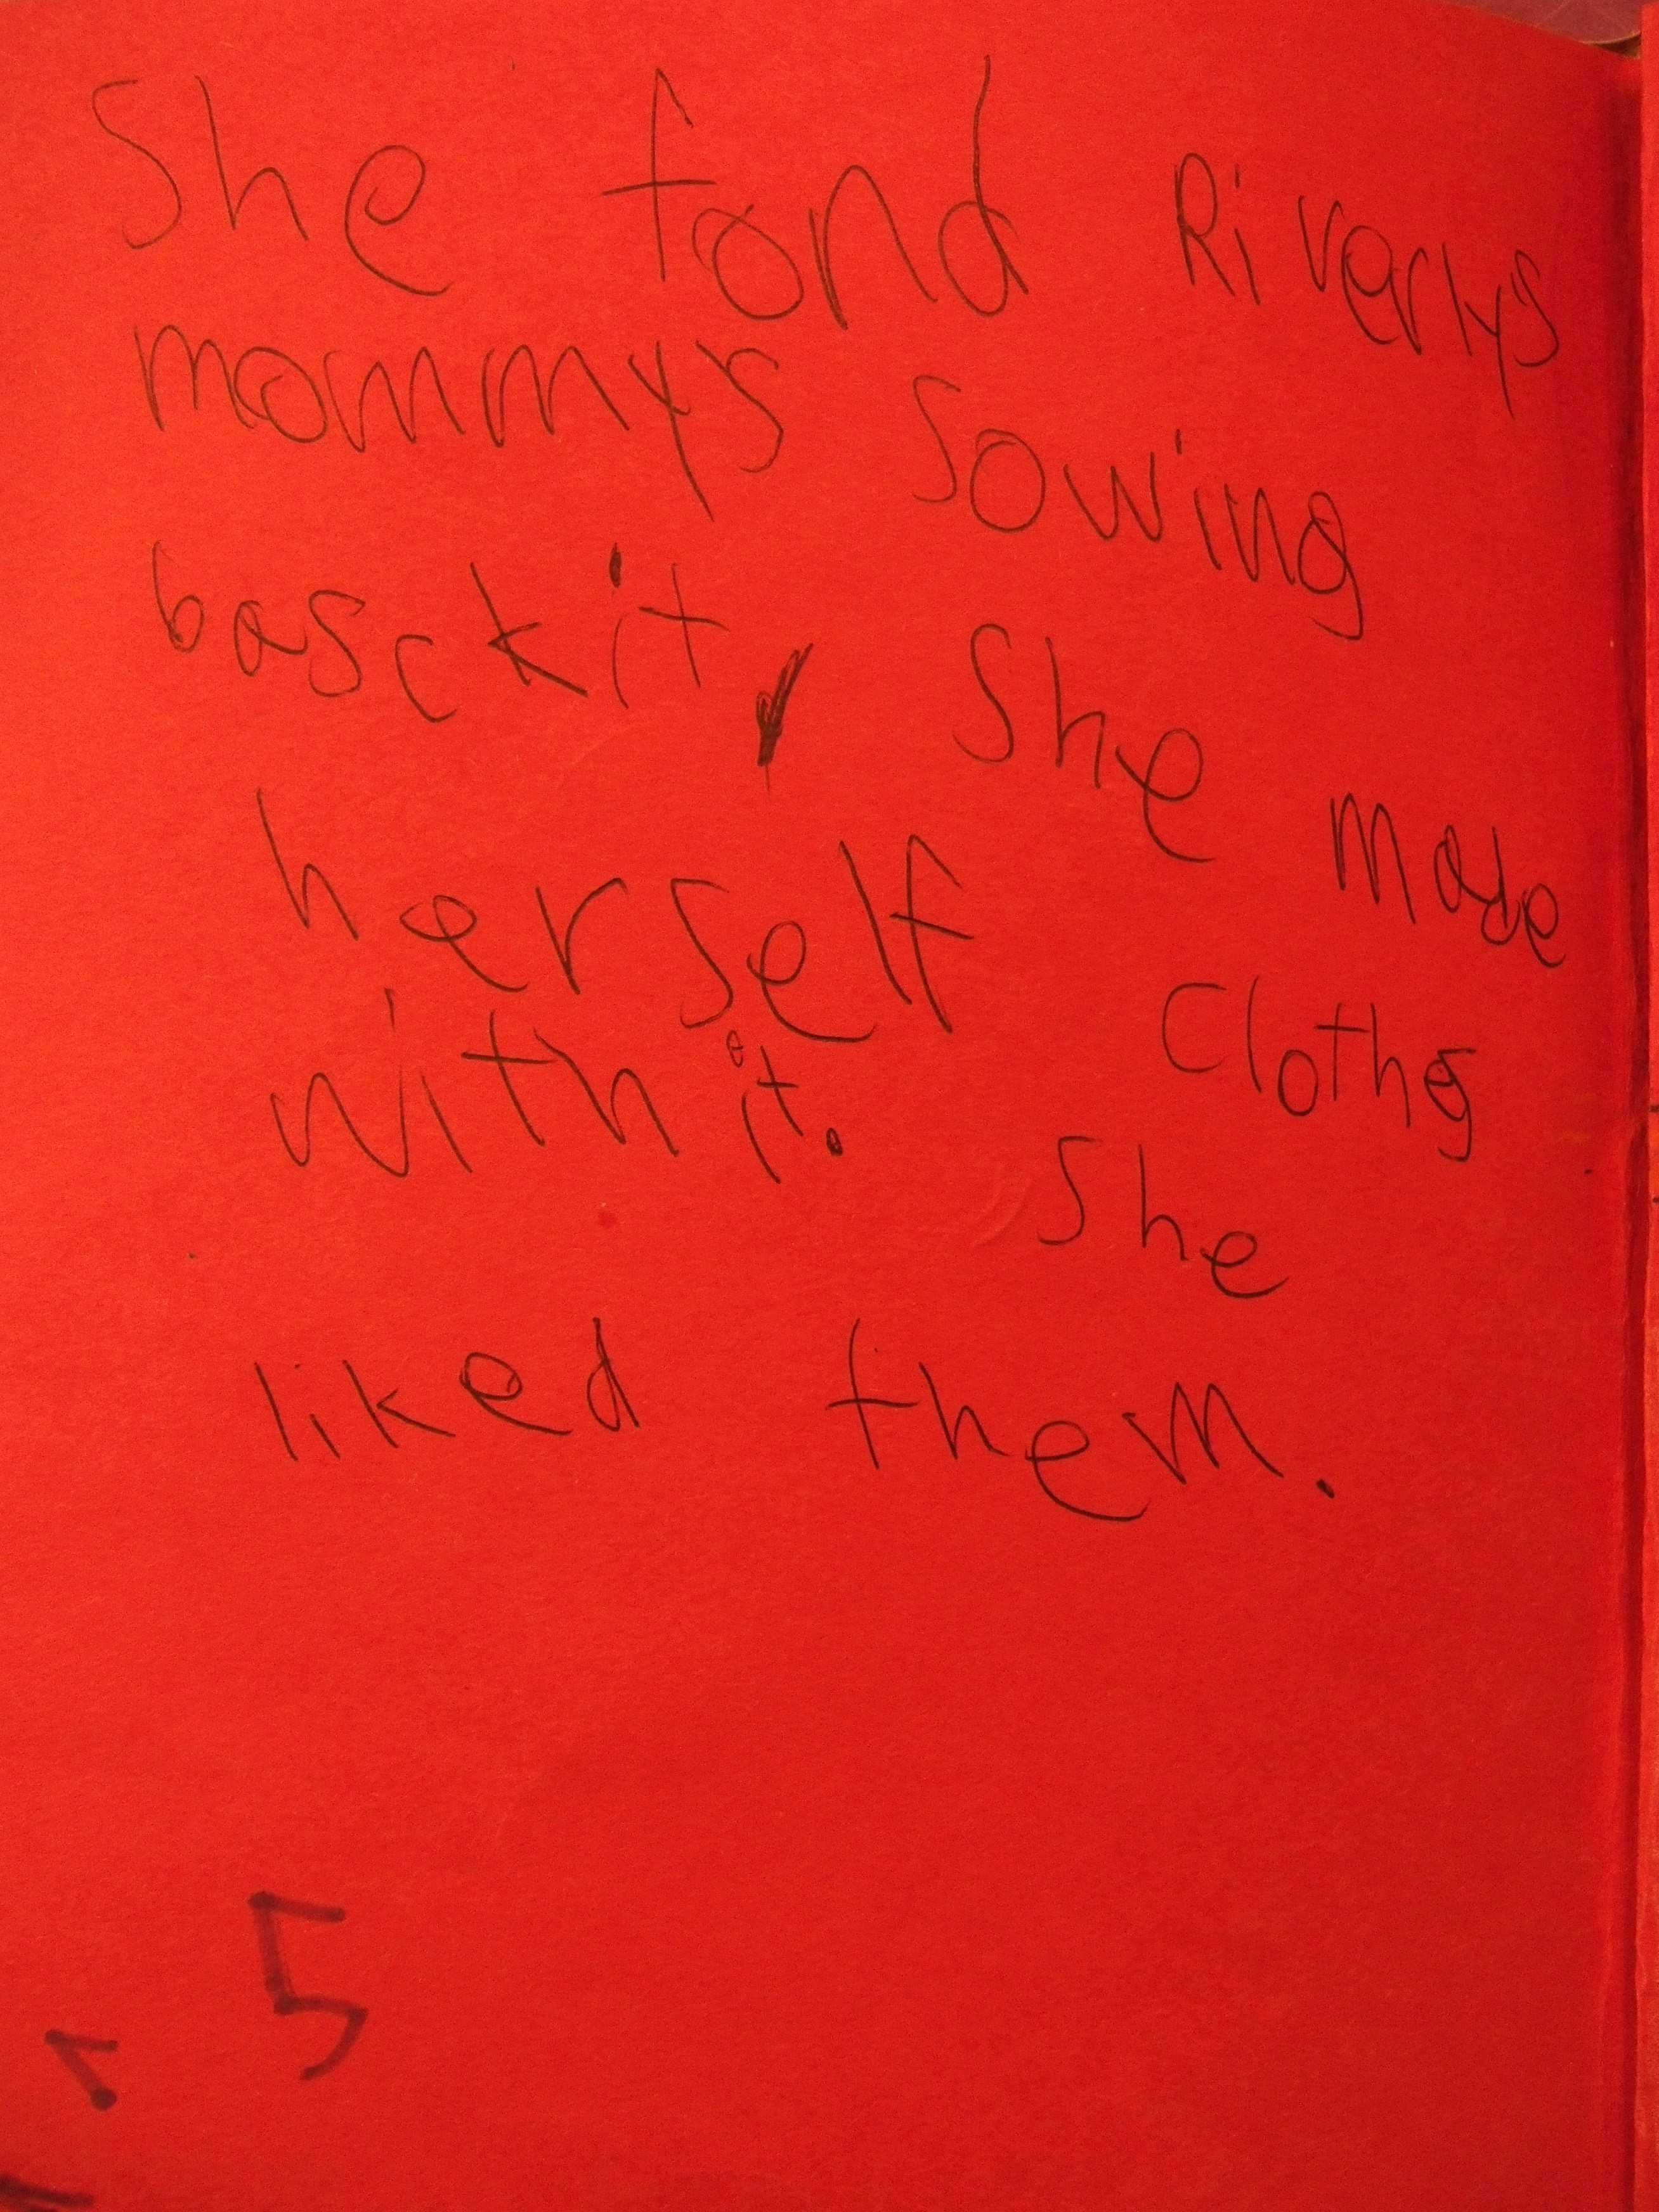 She fond Riverlys
mommys sowing
basckit, She made
herself Cloths
with it. She
liked them.
5